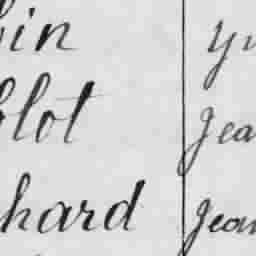 in Yv
lot Jea
hard Jean